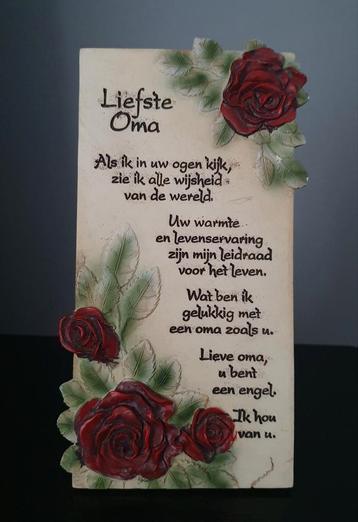 Liefste
Oma
Als ik in uw ogen kijk,
zie ik alle wijsheid
van de wereld.
Uw warmte
en levenservaring
zijn mijn leidraad
voor het leven.
Wat ben ik
gelukkig met
een oma zoals u.
Lieve oma,
u bent
een engel.
Ik hou
van u.